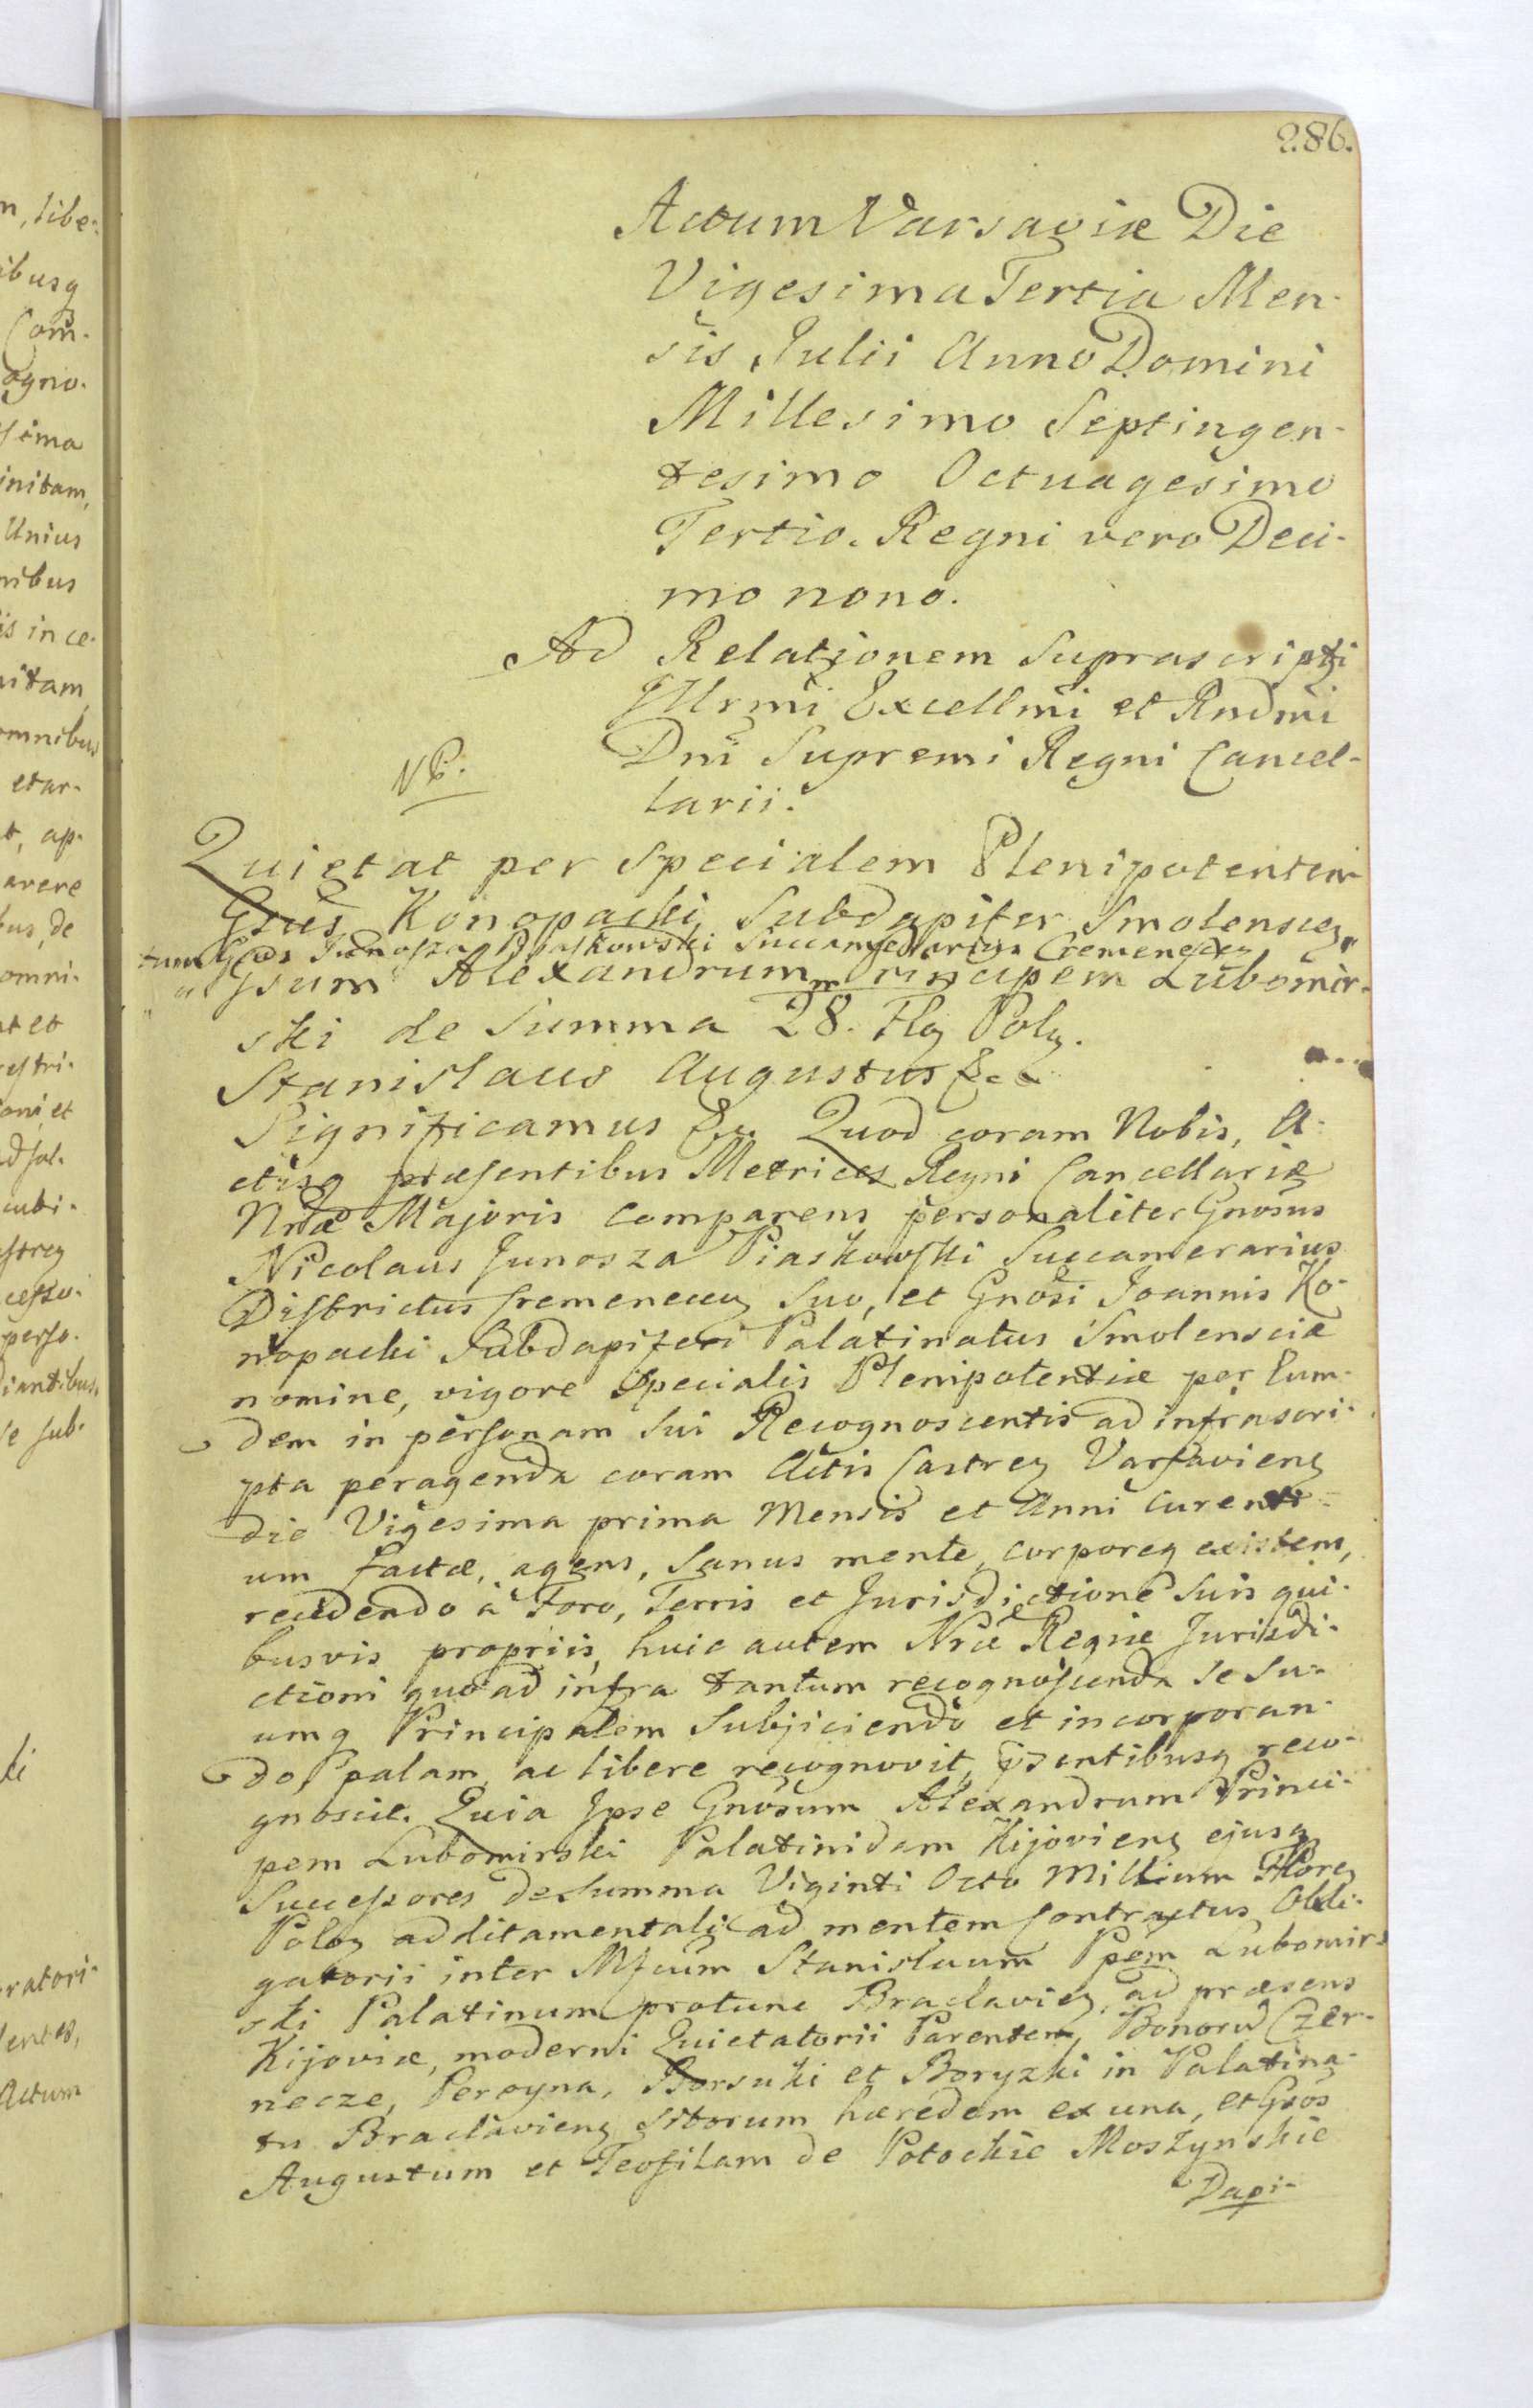 286.
Actum Varsaviæ Die
Vigesima Tertia Men-
sis Julii Anno Domini
Millesimo Septingen-
tesimo Octuagesimo
Tertio. Regni vero Deci-
mo nono.
Ad Relationem Suprascripti
Illrmi Excellmi et Rndmi
Dni Supremi Regni Cancel-
larii.
NP.
Quietat per Specialem Plenipotentia
Gsus Konopacki, Subdapifer Smolenscen
tum Gsus Junosza Piaskowski Succamerarius Cremenecen
Gsum Alexandrum Principem Lubomir-
ski de Summa 28.m Flg Polg.
Stanislaus Augustus &c
Significamus &c. Quod coram Nobis, A-
ctisq præsentibus Metrices Regni Cancellariæ
Nræ Majoris Comparens personaliter Gnosus
Nicolaus Junosza Piaskowski Succamerarius
Districtus Cremenecen Suo, et Gnosi Joannis Ko-
nopacki Subdapiferi Palatinatus Smolensciæ
nomine, vigore Specialis Plenipotentiæ per Eum-
dem in personam Sui Recognoscentis ad infrascri-
pta peragenda coram Actis Castren Varsavien
die Vigesima prima Mensis et Anni Curenti-
um factæ, agens, Sanus mente, corporeq existens,
recedendo à Foro, Terris et Jurisdictione Suis qui-
busvis propriis, huic autem Nræ Regiæ Jurisdi-
ctioni quo ad infra tantum recognoscenda Se Su-
umq Principalem Subjiciendo et incorporan-
do, palam ac libere recognovit, pssentibusq reco-
gnoscit. Quia Jpse Gnosum Alexandrum Princi-
pem Lubomirski Palatinidam Kijovien ejusq
Successores de Summa Viginti Octo Millium Floren
Polon additamentali ad mentem Contractus Obli-
gatorii inter Mfcum Stanislaum Ppem Lubomir-
ski Palatinum protunc Braclavien, ad præsens
Kijoviæ, moderni Quietatorii Parentem, Bonorũ Czer-
necze, Peroyna, Borsuki et Boryzki in Palatina-
tu Braclavien Sitorum hæredem ex una, et Gsos
Augustum et Teofilam de Potockie Moszynskie
Dapi-